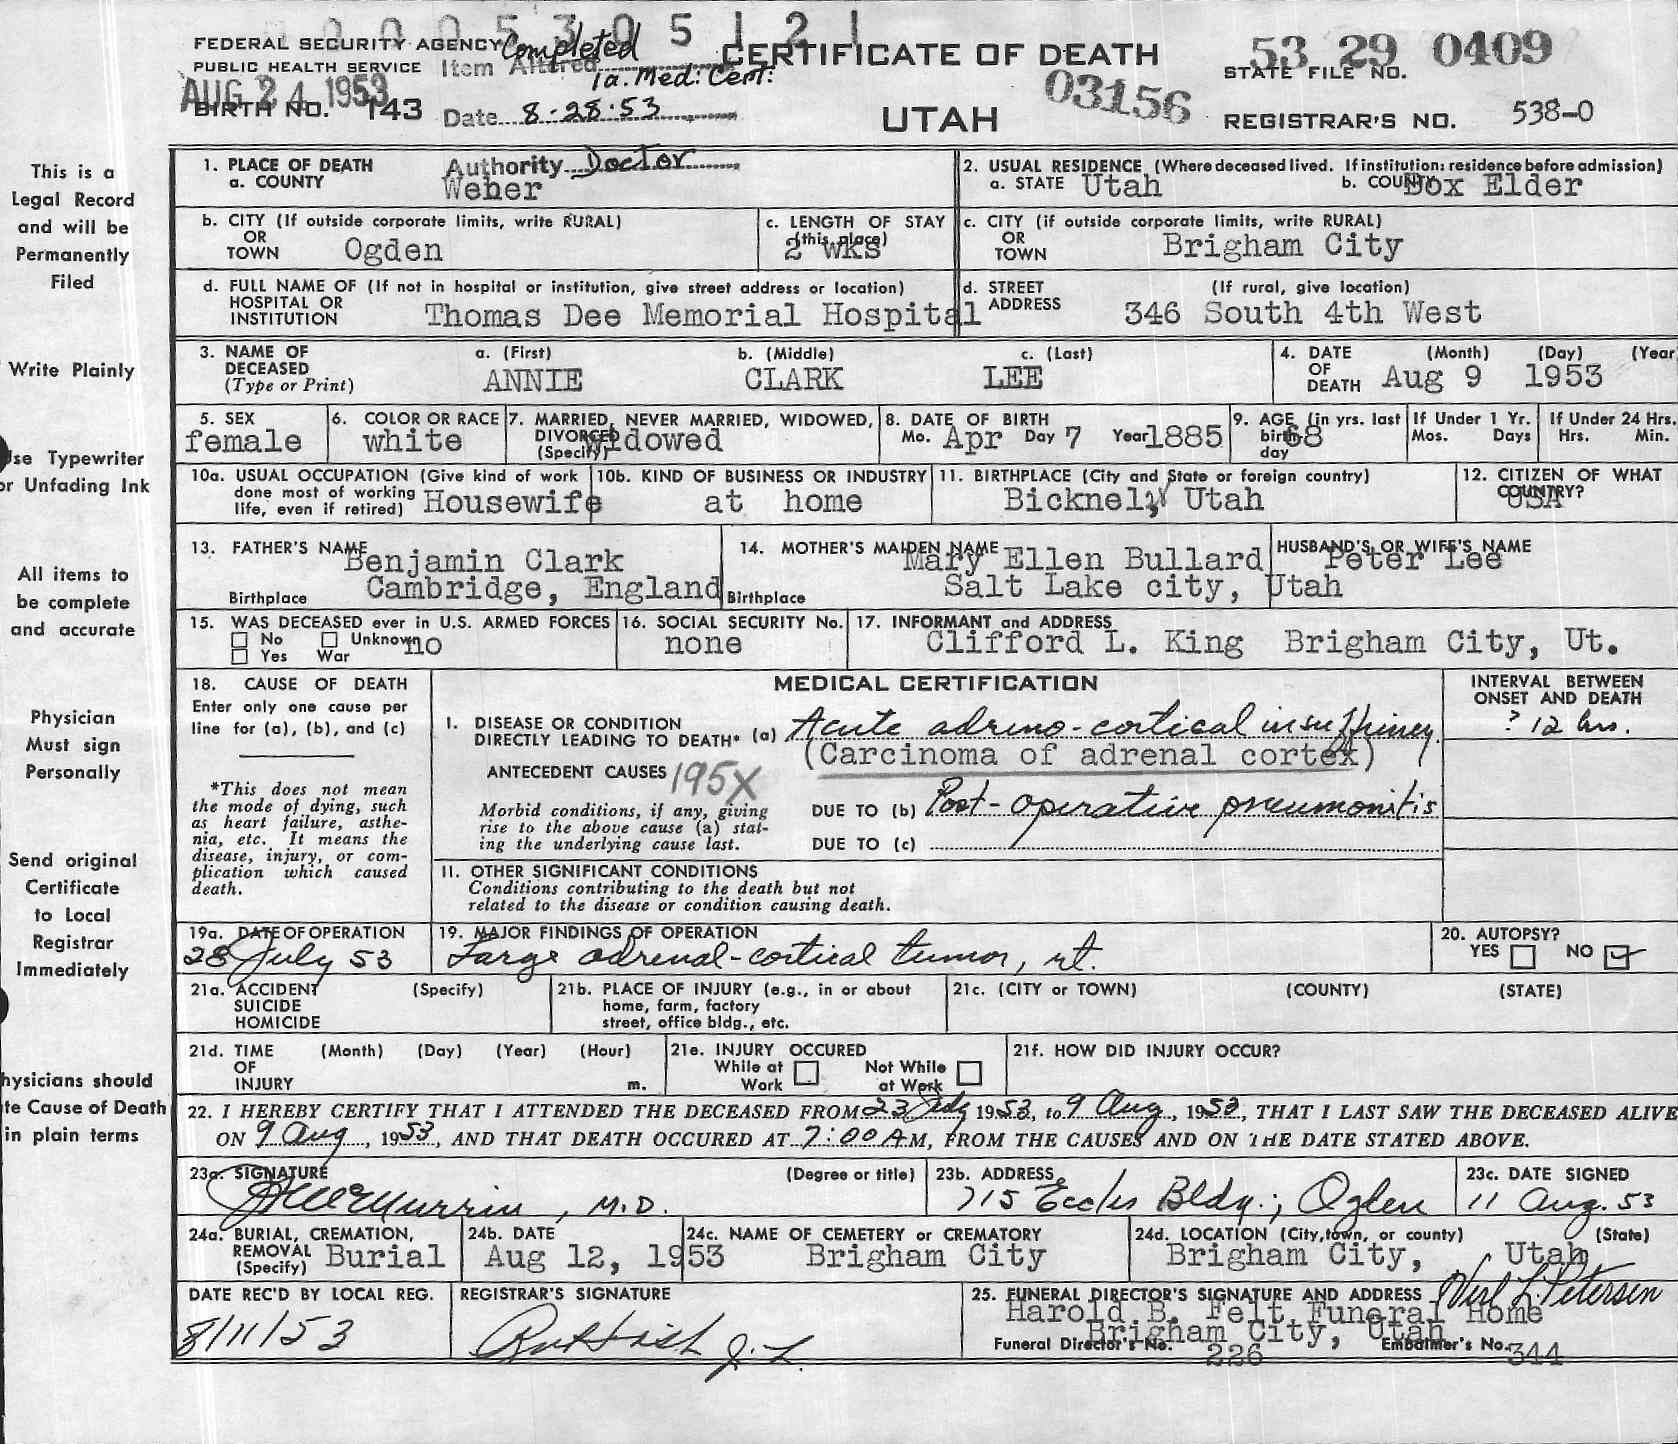 0 0 0 5 3 0 5 1 2 1
FEDERAL SECURITY AGENCY Completed CERTIFICATE OF DEATH 53 29 0409
PUBLIC HEALTH SERVICE Item Altered 1a. Med: Cert: STATE FILE NO.
AUG 24 1953 03156
BIRTH NO. 143 Date 8-28-53 UTAH REGISTRAR'S NO. 538-0
This is a
Legal Record
and will be
Permanently
Filed
Write Plainly
Use Typewriter
or Unfading Ink
All items to
be complete
and accurate
Physician
Must sign
Personally
Send original
Certificate
to Local
Registrar
Immediately
hysicians should
te Cause of Death
in plain terms
1. PLACE OF DEATH Authority Doctor
a. COUNTY Weber
2. USUAL RESIDENCE (Where deceased lived. If institution: residence before admission)
a. STATE Utah b. COUNTY Box Elder
b. CITY (If outside corporate limits, write RURAL)
OR
TOWN Ogden
c. LENGTH OF STAY
(this place)
2 wks
c. CITY (if outside corporate limits, write RURAL)
OR
TOWN Brigham City
d. FULL NAME OF (If not in hospital or institution, give street address or location)
HOSPITAL OR
INSTITUTION Thomas Dee Memorial Hospital
d. STREET (If rural, give location)
ADDRESS 346 South 4th West
3. NAME OF a. (First) b. (Middle) c. (Last)
DECEASED
(Type or Print) ANNIE CLARK LEE
4. DATE (Month) (Day) (Year
OF
DEATH Aug 9 1953
5. SEX
female
6. COLOR OR RACE
white
7. MARRIED, NEVER MARRIED, WIDOWED,
DIVORCED
(Specify) widowed
8. DATE OF BIRTH
Mo. Apr Day 7 Year 1885
9. AGE (in yrs. last
birth
day 68
If Under 1 Yr.
Mos. Days
If Under 24 Hrs.
Hrs. Min.
10a. USUAL OCCUPATION (Give kind of work
done most of working
life, even if retired) Housewife
10b. KIND OF BUSINESS OR INDUSTRY
at home
11. BIRTHPLACE (City and State or foreign country)
Bicknell, Utah
12. CITIZEN OF WHAT
COUNTRY?
USA
13. FATHER'S NAME Benjamin Clark
Birthplace Cambridge, England
14. MOTHER'S MAIDEN NAME Mary Ellen Bullard
Birthplace Salt Lake city, Utah
HUSBAND'S OR WIFE'S NAME
Peter Lee
15. WAS DECEASED ever in U.S. ARMED FORCES
No Unknown no
Yes War
16. SOCIAL SECURITY No.
none
17. INFORMANT and ADDRESS
Clifford L. King Brigham City, Ut.
18. CAUSE OF DEATH
Enter only one cause per
line for (a), (b), and (c)
*This does not mean
the mode of dying, such
as heart failure, asthe-
nia, etc. It means the
disease, injury, or com-
plication which caused
death.
MEDICAL CERTIFICATION
INTERVAL BETWEEN
ONSET AND DEATH
I. DISEASE OR CONDITION
DIRECTLY LEADING TO DEATH* (a) Acute adreno-cortical insuffhiney. ? 12 hrs.
(Carcinoma of adrenal cortex)
ANTECEDENT CAUSES 195X
Morbid conditions, if any, giving
rise to the above cause (a) stat-
ing the underlying cause last.
DUE TO (b) Post-operative pneumonitis
DUE TO (c)
II. OTHER SIGNIFICANT CONDITIONS
Conditions contributing to the death but not
related to the disease or condition causing death.
19a. DATE OF OPERATION
28 July 53
19. MAJOR FINDINGS OF OPERATION
Large adrenal-cortical tumor, rt.
20. AUTOPSY?
YES NO
21a. ACCIDENT (Specify)
SUICIDE
HOMICIDE
21b. PLACE OF INJURY (e.g., in or about
home, farm, factory
street, office bldg., etc.
21c. (CITY or TOWN) (COUNTY) (STATE)
21d. TIME (Month) (Day) (Year) (Hour)
OF
INJURY m.
21e. INJURY OCCURED
While at Work Not While at Work
21f. HOW DID INJURY OCCUR?
22. I HEREBY CERTIFY THAT I ATTENDED THE DECEASED FROM 23 July 1953, to 9 Aug, 1953, THAT I LAST SAW THE DECEASED ALIVE
ON 9 Aug, 1953, AND THAT DEATH OCCURED AT 7:00 AM, FROM THE CAUSES AND ON THE DATE STATED ABOVE.
23a. SIGNATURE (Degree or title)
McMurrin, M.D.
23b. ADDRESS
715 Eccles Bldg.; Ogden
23c. DATE SIGNED
11 Aug. 53
24a. BURIAL, CREMATION,
REMOVAL
(Specify) Burial
24b. DATE
Aug 12, 1953
24c. NAME OF CEMETERY or CREMATORY
Brigham City
24d. LOCATION (City, town, or county) (State)
Brigham City, Utah
DATE REC'D BY LOCAL REG.
8/11/53
REGISTRAR'S SIGNATURE
25. FUNERAL DIRECTOR'S SIGNATURE AND ADDRESS Verl L. Petersen
Harold B. Felt Funeral Home
Brigham City, Utah
Funeral Director's No. 226 Embalmer's No. 344